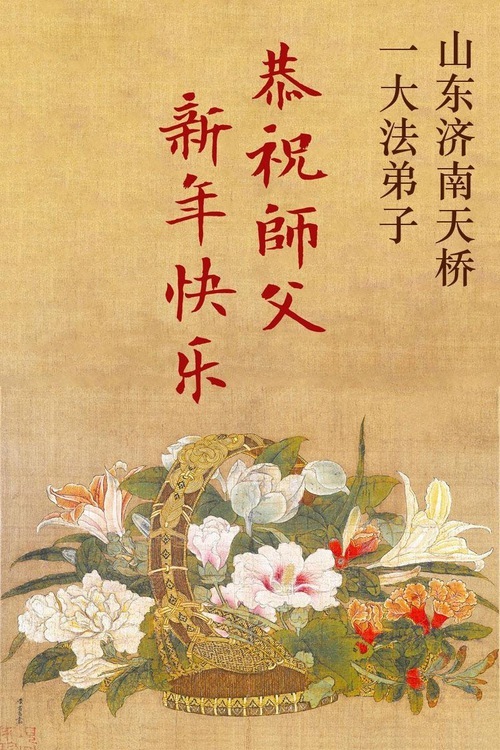 山东济南天桥
一大法弟子
恭祝師父
新年快乐